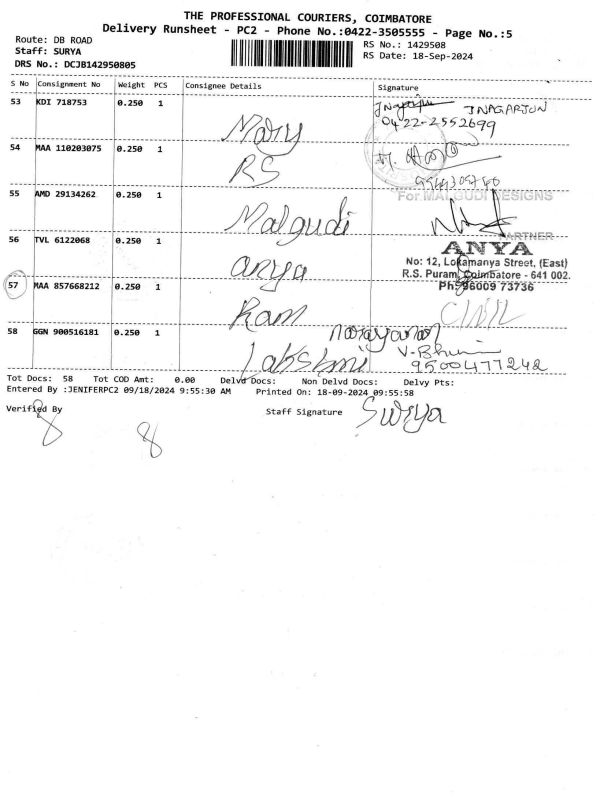 THE PROFESSIONAL COURIERS, COIMBATORE
Delivery Runsheet - PC2 - Phone No.:0422-3505555 - Page No.:5
Route: DB ROAD
Staff: SURYA
DRS No.: DCJB142950805
RS No.: 1429508
RS Date: 18-Sep-2024
S No Consignment No Weight PCS Consignee Details Signature
53 KDI 718753 0.250 1 Mary JNAGARJUN
0422-2552699
54 MAA 110203075 0.250 1 RS
55 AMD 29134262 0.250 1 Malgudi For MALGUDI DESIGNS
PARTNER
56 TVL 6122068 0.250 1 anya ANYA
No: 12, Lokamanya Street, (East)
R.S. Puram, Coimbatore - 641 002.
Ph: 96009 73736
57 MAA 857668212 0.250 1 Ram
58 GGN 900516181 0.250 1 Lakshmi narayanan
9500477242
Tot Docs: 58 Tot COD Amt: 0.00 Delvd Docs: Non Delvd Docs: Delvy Pts:
Entered By :JENIFERPC2 09/18/2024 9:55:30 AM Printed On: 18-09-2024 09:55:58
Verified By Staff Signature Surya